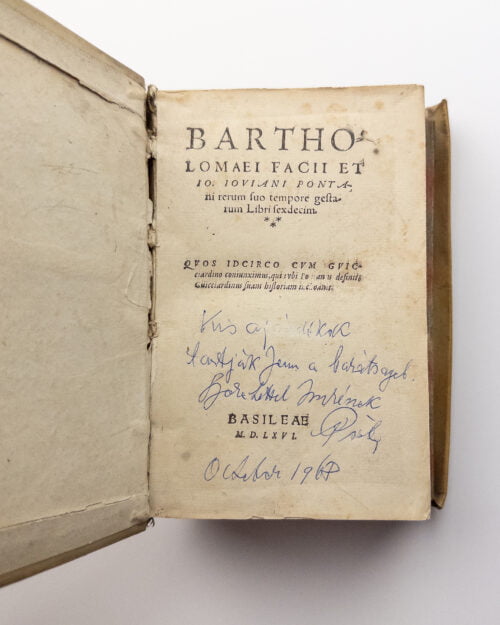 BARTHO-
LOMAEI FACII ET
IO. IOVIANI PONTA-
ni rerum suo tempore gesta-
rum Libri sexdecim.
***
QVOS IDCIRCO CVM GVIC-
ciardino coniunximus, qui ubi definit,
Guicciardinus suam historiam
Kis ajándékok
tartják fenn a barátságot.
Szeretettel Imrének
BASILEAE
M. D. LXVI.
October 1968